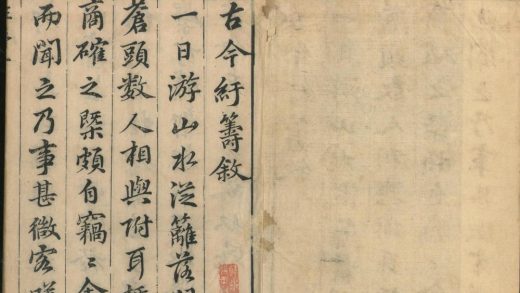 古今紆籌敘
一日游山水從籬落
蒼頭数人相與附耳
商確之槩頗自竊〻
兩聞之乃事甚微客